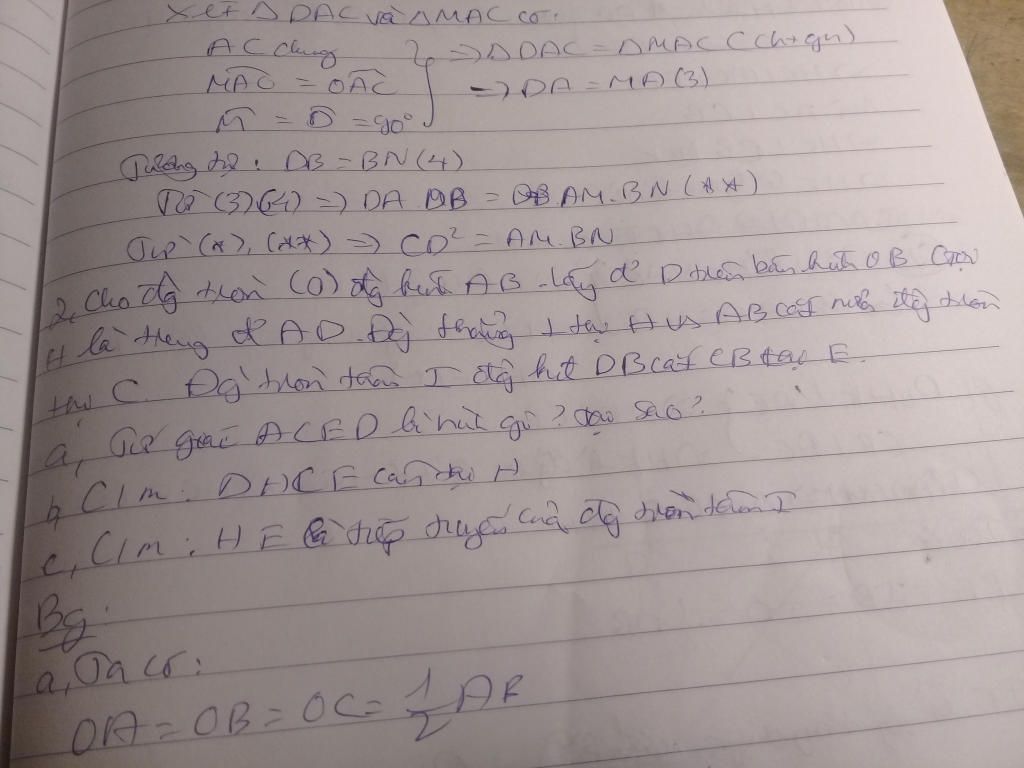 Xét Δ DAC và Δ MAC có:
AC chung
MAC = OAC
M = D = 90°
=> Δ DAC = Δ MAC (ch+gn)
=> DA = MA (3)
Tương tự: DB = BN (4)
Từ (3)(4) => DA . DB = AM.BN (**)
Từ (*), (**) => CD² = AM.BN
2, Cho đg tròn (O) đg kính AB. Lấy đ' D trên bán kính OB. Gọi
H là trung đ' AD. Đg thẳng ⊥ tại H vs AB cắt nửa đg tròn
tại C. Đg tròn tâm I đg kính DB cắt CB tại E.
a, Tứ giác ACED là hình gì? tại sao?
b, C/m: ΔHCE cân tại H
c, C/m: HE là tiếp tuyến của đg tròn tâm I
Bg:
a, Ta có:
OA = OB = OC = 1/2 AB